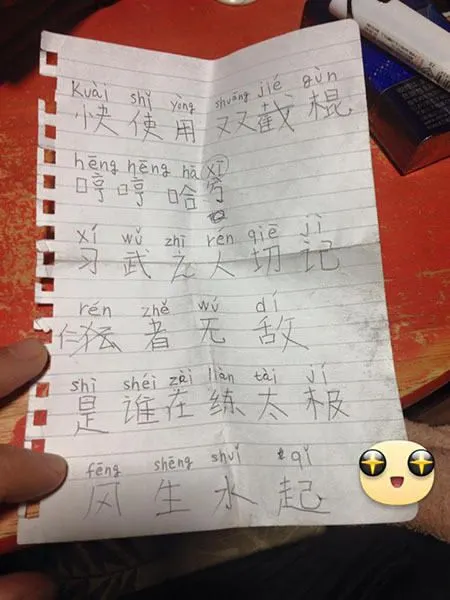 Kuài shǐ yòng shuāng jié gùn
快使用双截棍
hēng hēng hā xī
哼哼哈兮
xí wǔ zhī rén qiē jì
习武之人切记
rén zhě wú dí
仁者无敌
shì shéi zài liàn tài jí
是谁在练太极
fēng shēng shuǐ qǐ
风生水起